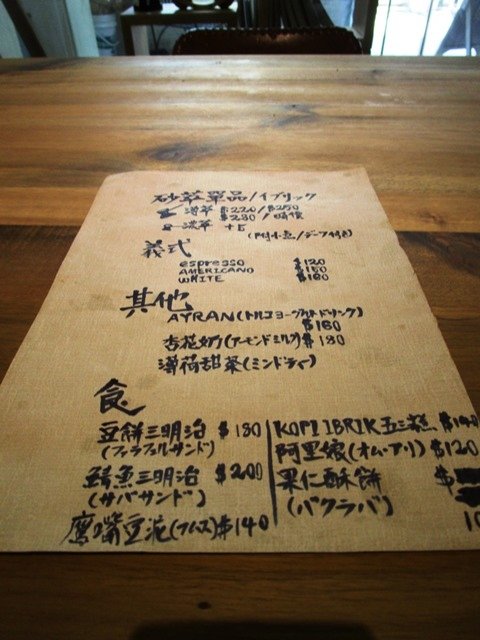 砂萃單品/イブリック
薄萃 $220/$250
$230/時價
濃萃 +5
義式
espresso $120
AMERICANO $150
WHITE $160
其他
AYRAN(トルコヨーグルトドリンク)
$160
杏花奶(アーモンドミルク) $180
薄荷甜茶(ミンティー)
食
豆餅三明治 $180
(ファラフェルサンド)
鯖魚三明治 $200
(サバサンド)
鷹嘴豆泥(フムス) $140
KOPI IBRIK五三糕 $140
阿里娘(オム・アリ) $120
果仁酥餅 $
(バクラバ)